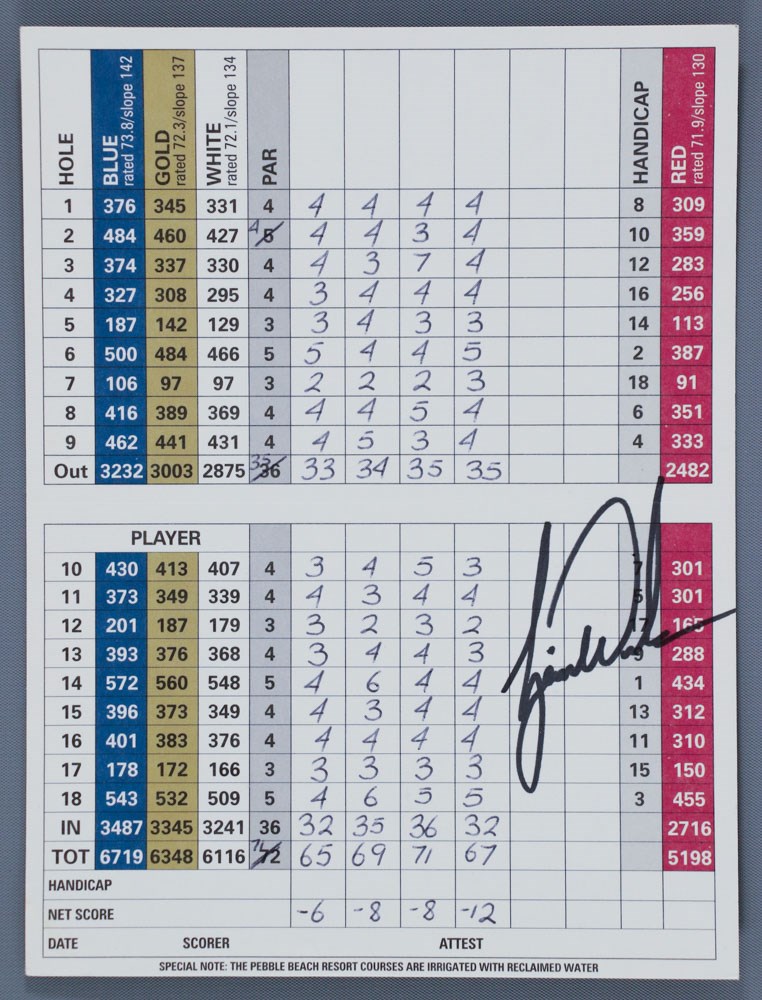 HOLE BLUE rated 73.8/slope 142 GOLD rated 72.3/slope 137 WHITE rated 72.1/slope 134 PAR HANDICAP RED rated 71.9/slope 130
1 376 345 331 4 4 4 4 4 8 309
2 484 460 427 4 5 4 4 3 4 10 359
3 374 337 330 4 4 3 7 4 12 283
4 327 308 295 4 3 4 4 4 16 256
5 187 142 129 3 3 4 3 3 14 113
6 500 484 466 5 5 4 4 5 2 387
7 106 97 97 3 2 2 2 3 18 91
8 416 389 369 4 4 4 5 4 6 351
9 462 441 431 4 4 5 3 4 4 333
Out 3232 3003 2875 35 36 33 34 35 35 2482
PLAYER
10 430 413 407 4 3 4 5 3 7 301
11 373 349 339 4 4 3 4 4 5 301
12 201 187 179 3 3 2 3 2 17 165
13 393 376 368 4 3 4 4 3 9 288
14 572 560 548 5 4 6 4 4 1 434
15 396 373 349 4 4 3 4 4 13 312
16 401 383 376 4 4 4 4 4 11 310
17 178 172 166 3 3 3 3 3 15 150
18 543 532 509 5 4 6 5 5 3 455
IN 3487 3345 3241 36 32 35 36 32 2716
TOT 6719 6348 6116 71 72 65 69 71 67 5198
HANDICAP
NET SCORE -6 -8 -8 -12
DATE SCORER ATTEST
SPECIAL NOTE: THE PEBBLE BEACH RESORT COURSES ARE IRRIGATED WITH RECLAIMED WATER